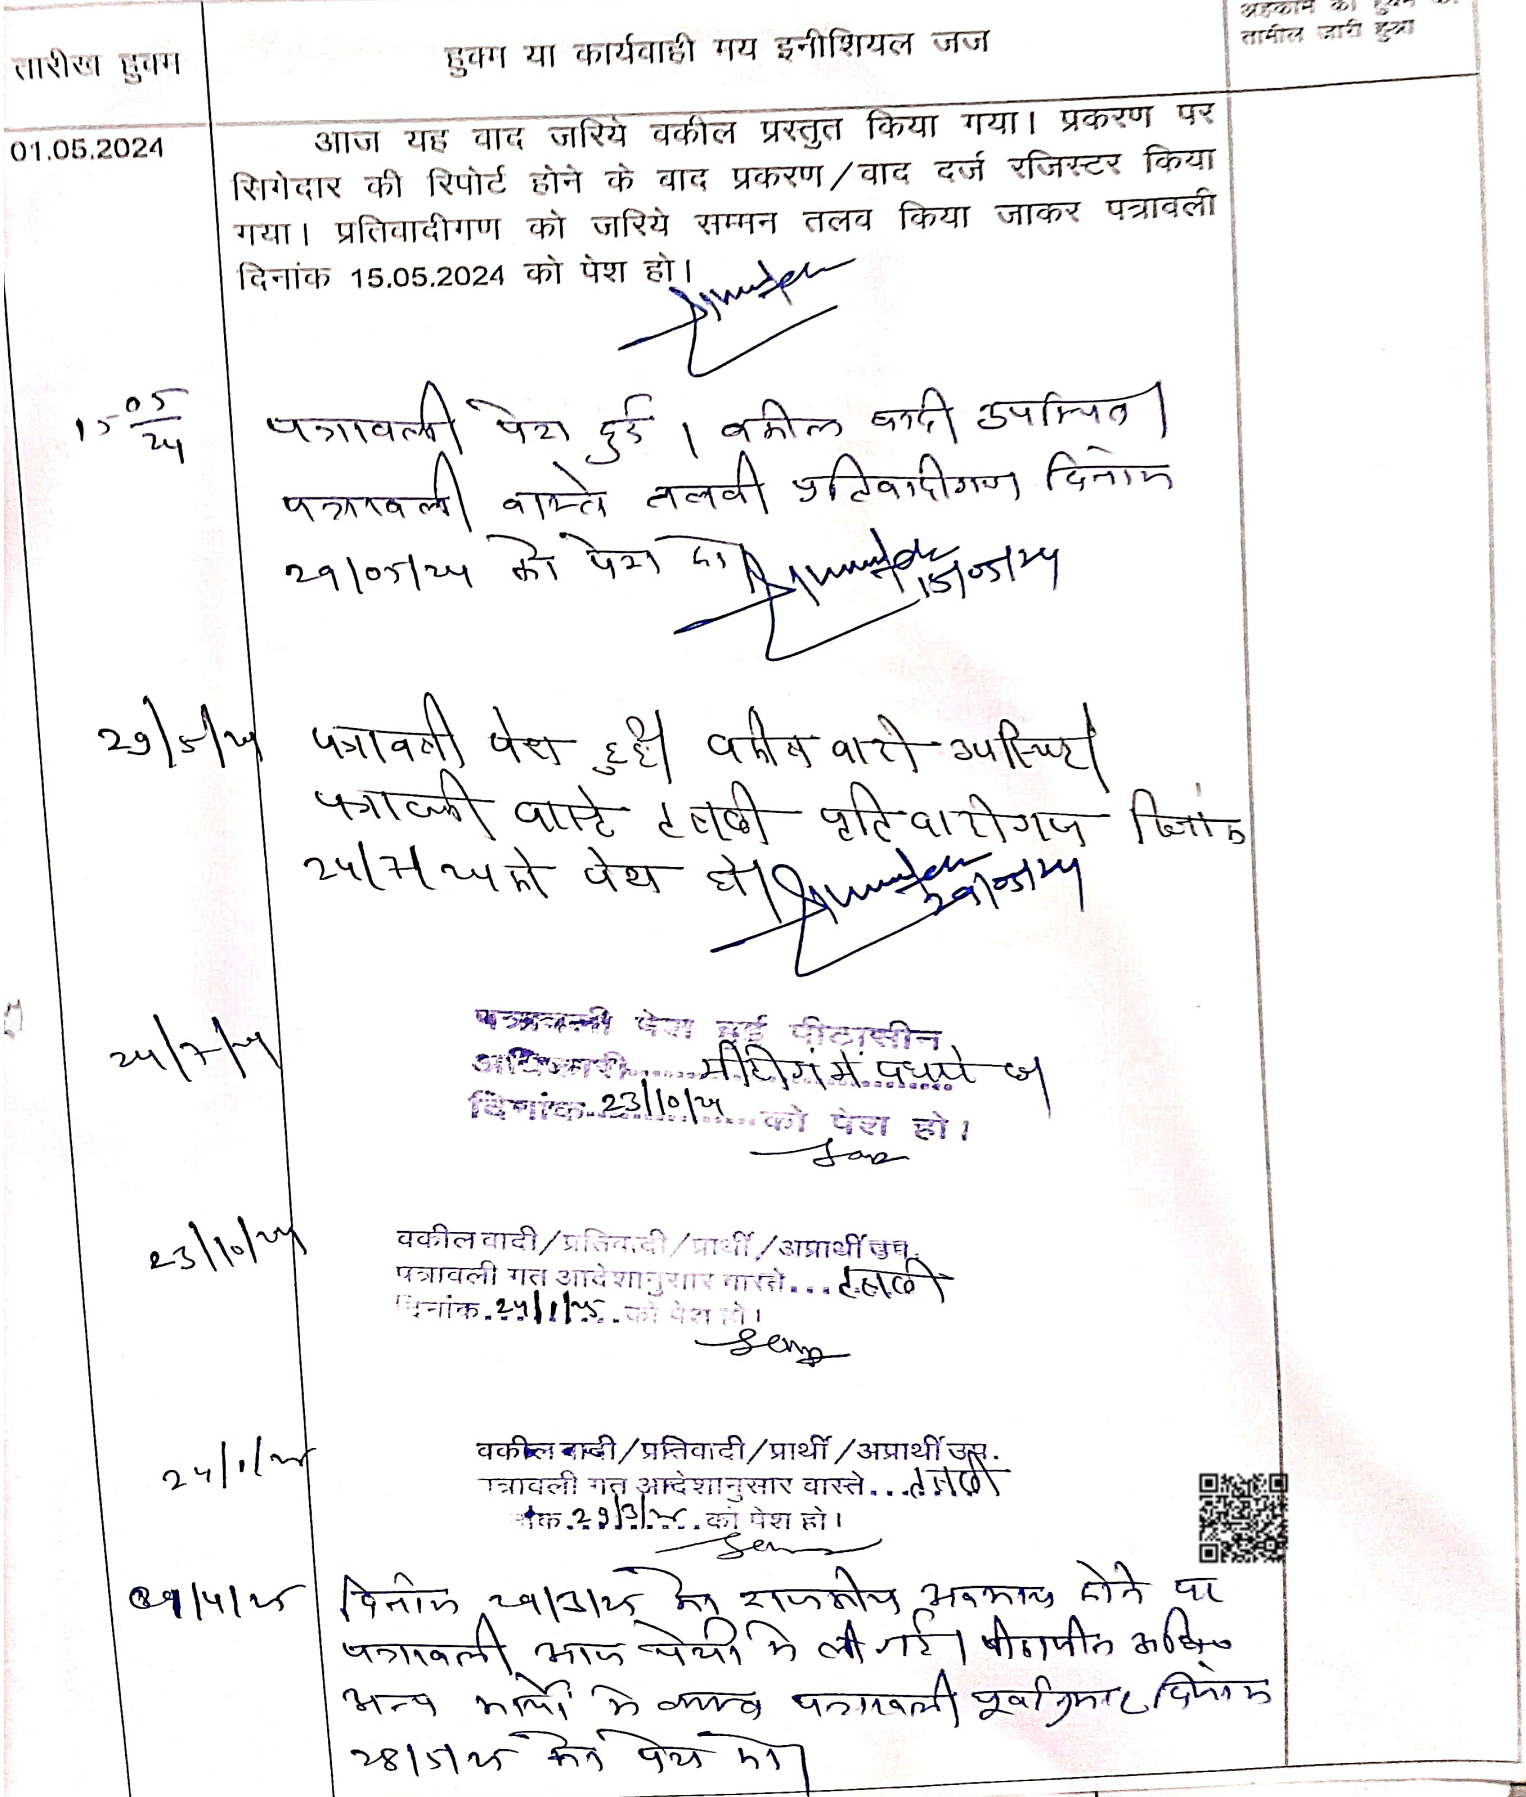 तारीख हुक्म
हुक्म या कार्यवाही मय इनीशियल जज
तामील जारी हुआ
01.05.2024
आज यह वाद जरिये वकील प्रस्तुत किया गया। प्रकरण पर
सिगेदार की रिपोर्ट होने के वाद प्रकरण/वाद दर्ज रजिस्टर किया
गया। प्रतिवादीगण को जरिये सम्मन तलव किया जाकर पत्रावली
दिनांक 15.05.2024 को पेश हो।
15 05/24
पत्रावली पेश हुई। वकील वादी उपस्थित।
पत्रावली वास्ते तलवी प्रतिवादीगण दिनांक
29/05/24 को पेश हो।
15/05/24
29/5/24
पत्रावली पेश हुई। वकील वादी उपस्थित।
पत्रावली वास्ते तलबी प्रतिवादीगण दिनांक
24/7/24 को पेश हो।
29/05/24
24/7/24
पत्रावली पेश हुई पीठासीन
अधिकारी......मीटींग में पधारे
दिनांक..23/10/24...को पेश हो।
23/10/24
वकील वादी/प्रतिवादी/प्रार्थी/अप्रार्थी उप.
पत्रावली गत आदेशानुसार वास्ते...तलबी
दिनांक.24/1/25..को पेश हो।
24/1/25
वकील वादी/प्रतिवादी/प्रार्थी/अप्रार्थी उस.
पत्रावली गत आदेशानुसार वास्ते...तलबी
नांक.29/3/25..को पेश हो।
दिनांक 29/3/25 को राजकीय अवकाश होने पर
पत्रावली आज पेशी मे ली गई। पीठासीन
अन्य कार्यो मे व्यस्त पत्रावली पूर्वानुसार दिनांक
28/5/25 को पेश हो।